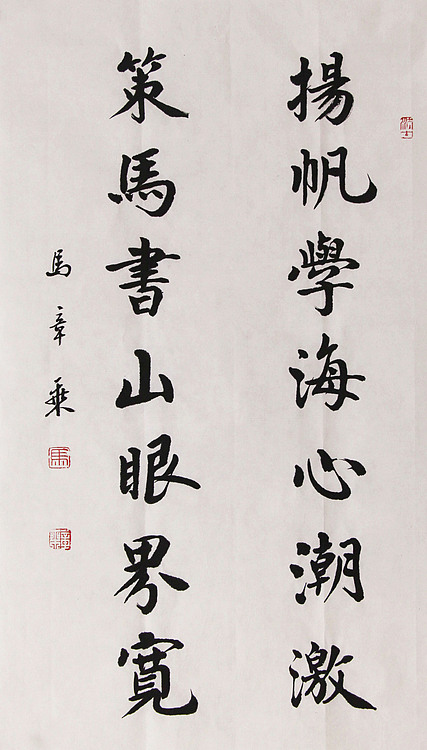 揚帆學海心潮激
策馬書山眼界寬
馬章乘